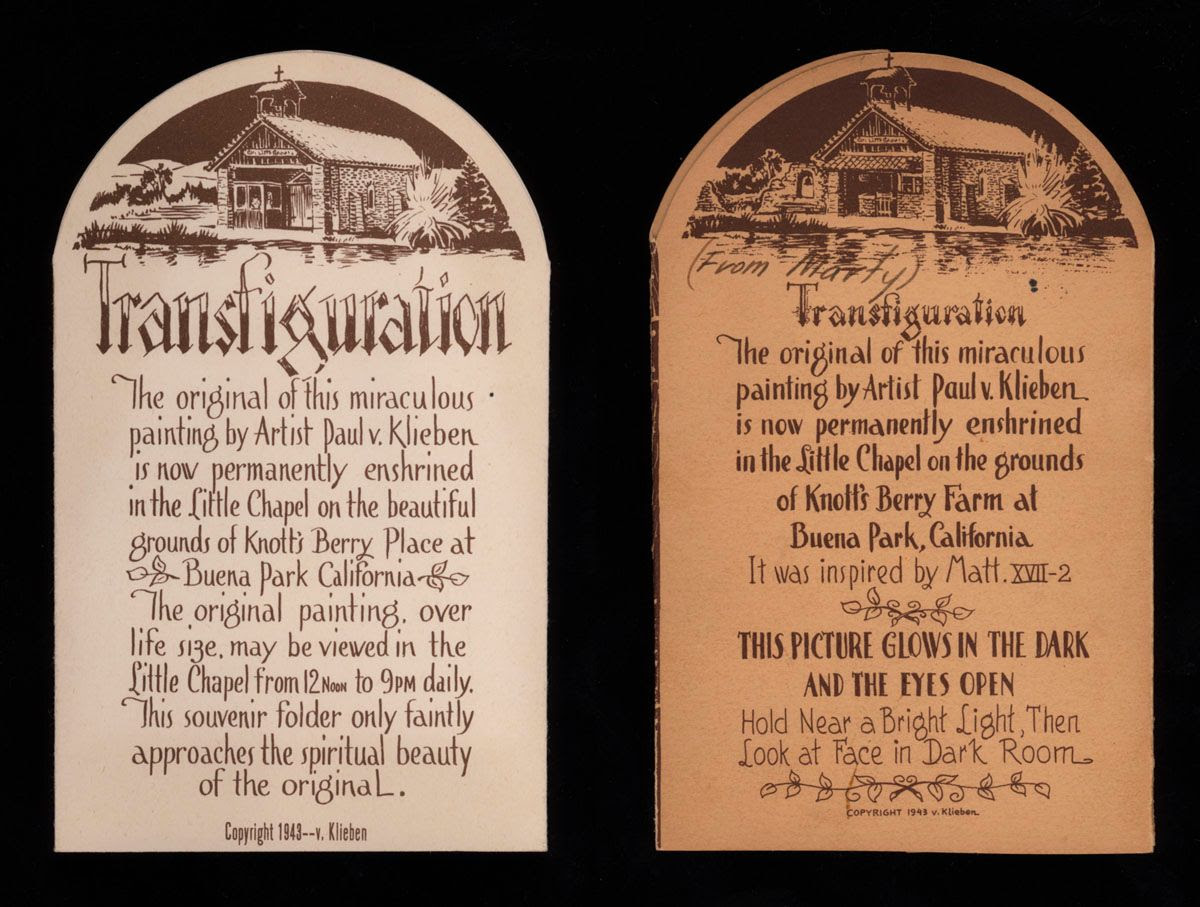 Transfiguration
The original of this miraculous
painting by Artist Paul v. Klieben
is now permanently enshrined
in the Little Chapel on the beautiful
grounds of Knott's Berry Place at
Buena Park California
The original painting, over
life size, may be viewed in the
Little Chapel from 12 NOON to 9PM daily.
This souvenir folder only faintly
approaches the spiritual beauty
of the originaL.
Copyright 1943--v. Klieben
(From Marty)
Transfiguration
The original of this miraculous
painting by Artist Paul v. Klieben
is now permanently enshrined
in the Little Chapel on the grounds
of Knott's Berry Farm at
Buena Park, California
It was inspired by Matt. XVII-2
THIS PICTURE GLOWS IN THE DARK
AND THE EYES OPEN
Hold Near a Bright Light, Then
Look at Face in Dark Room
COPYRIGHT 1943 v. Klieben